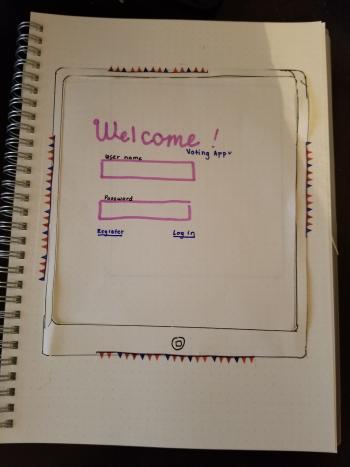 Welcome!
Voting App
User name
Password
Register
Log in